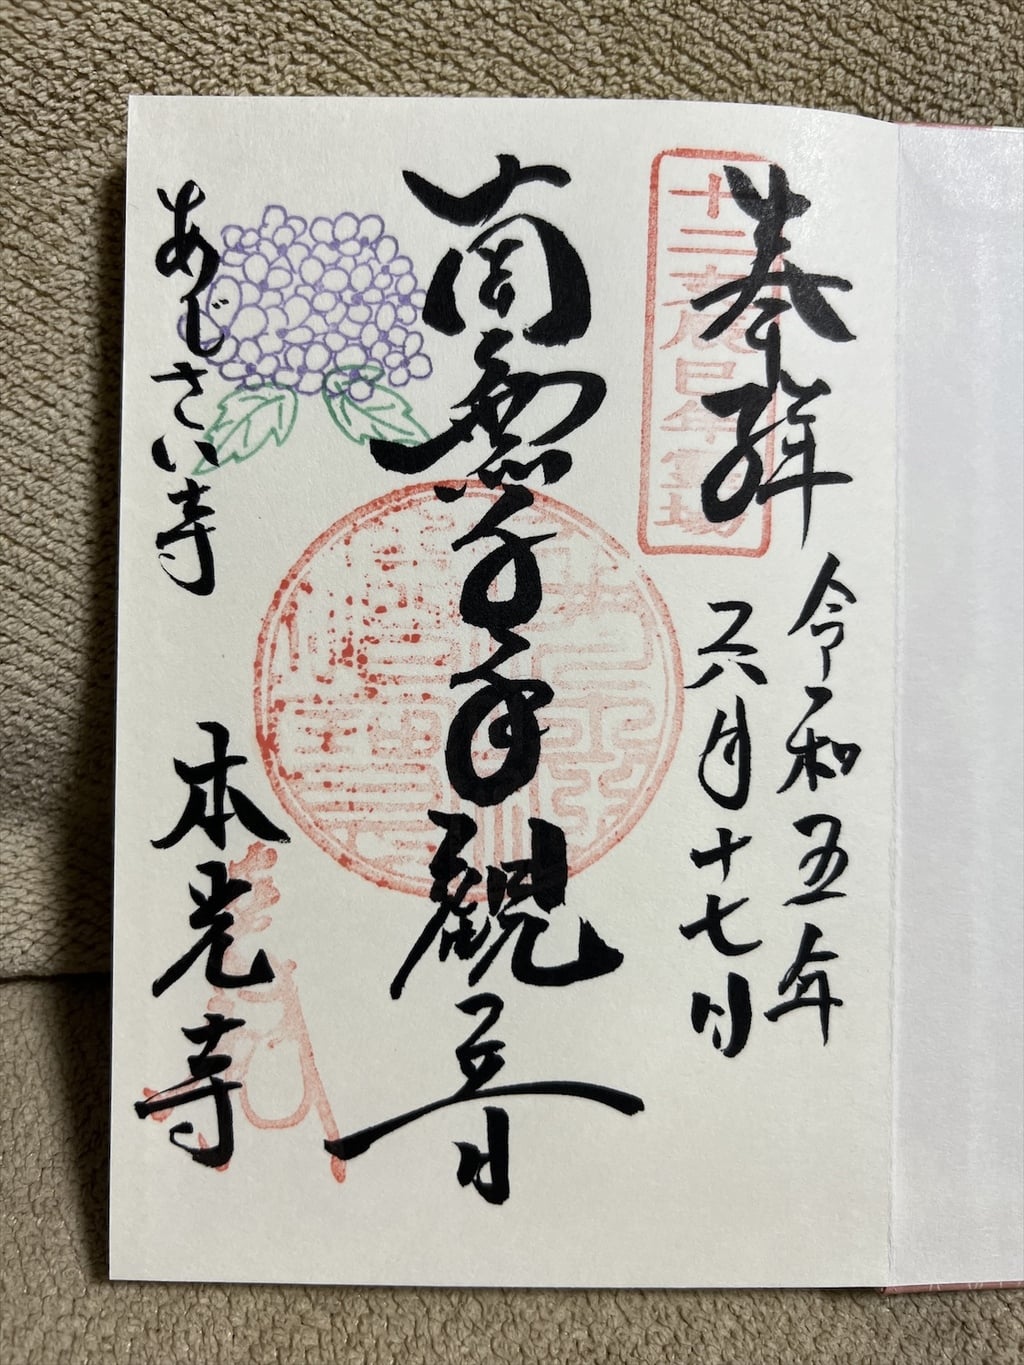 奉拝
十二支辰巳年霊場
令和五年
六月十七日
南無千手観音
あじさい寺
本光寺